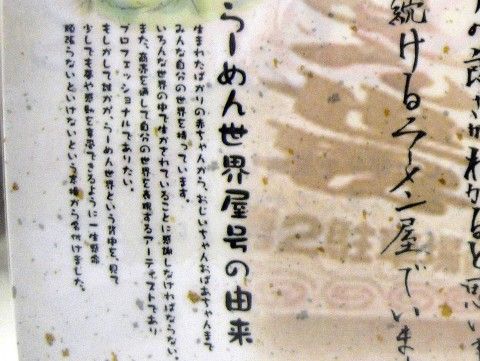 の良さがわかると思いま
続けるラーメン屋でいま
らーめん世界屋号の由来
生まれたばかりの赤ちゃんから、おじいちゃんおばあちゃんまで
みんな自分の世界を持っています。
いろんな世界の中で生かされていることに感謝しなければならない。
また、商売を通して自分の世界を表現するアーティストであり
プロフェッショナルでありたい。
もしかして誰かが、らーめん世界という背中を、見て
少しでも夢や感動を享受できるように一生懸命
頑張らないといけないという気持から名付けました。